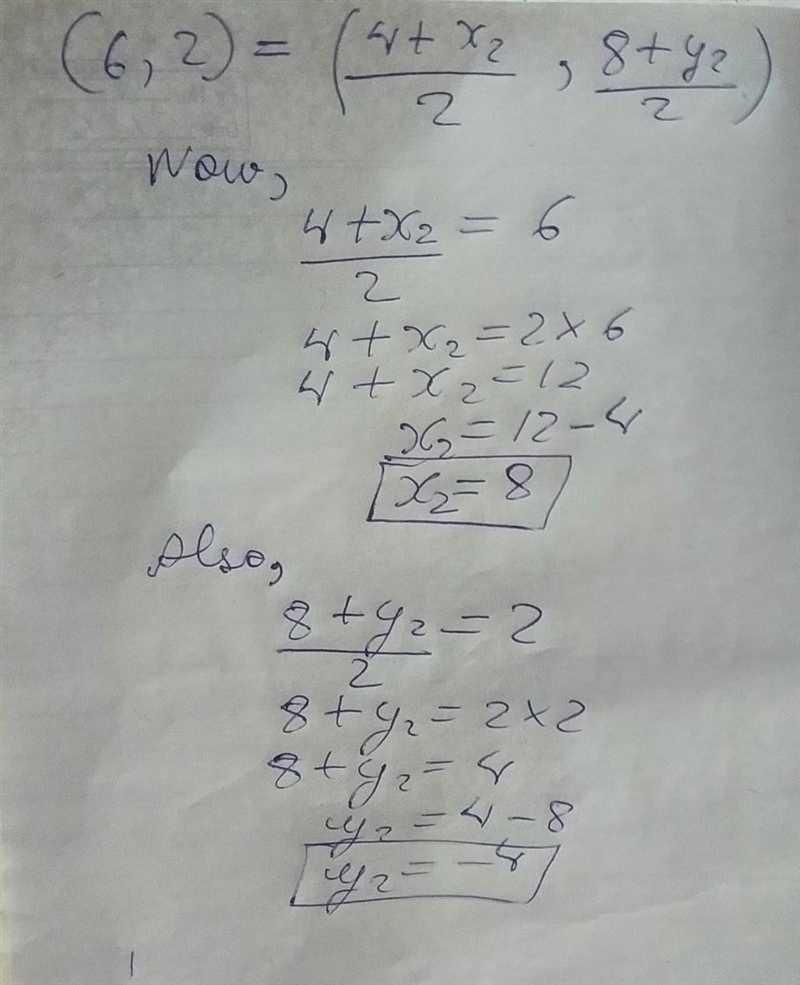 (6, 2) = (4 + x₂ / 2 , 8 + y₂ / 2)
Now,
4 + x₂ / 2 = 6
4 + x₂ = 2 × 6
4 + x₂ = 12
x₂ = 12 - 4
x₂ = 8
Also,
8 + y₂ / 2 = 2
8 + y₂ = 2 × 2
8 + y₂ = 4
y₂ = 4 - 8
y₂ = -4